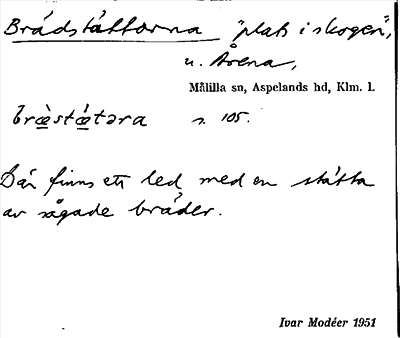 Brädstättorna "plats i skogen",
u. Årena,
Målilla sn, Aspelands hd, Klm. l.
bræ̀stæ̀təra s. 105.
Där finns ett led med en stätta
av sågade bräder.
Ivar Modéer 1951